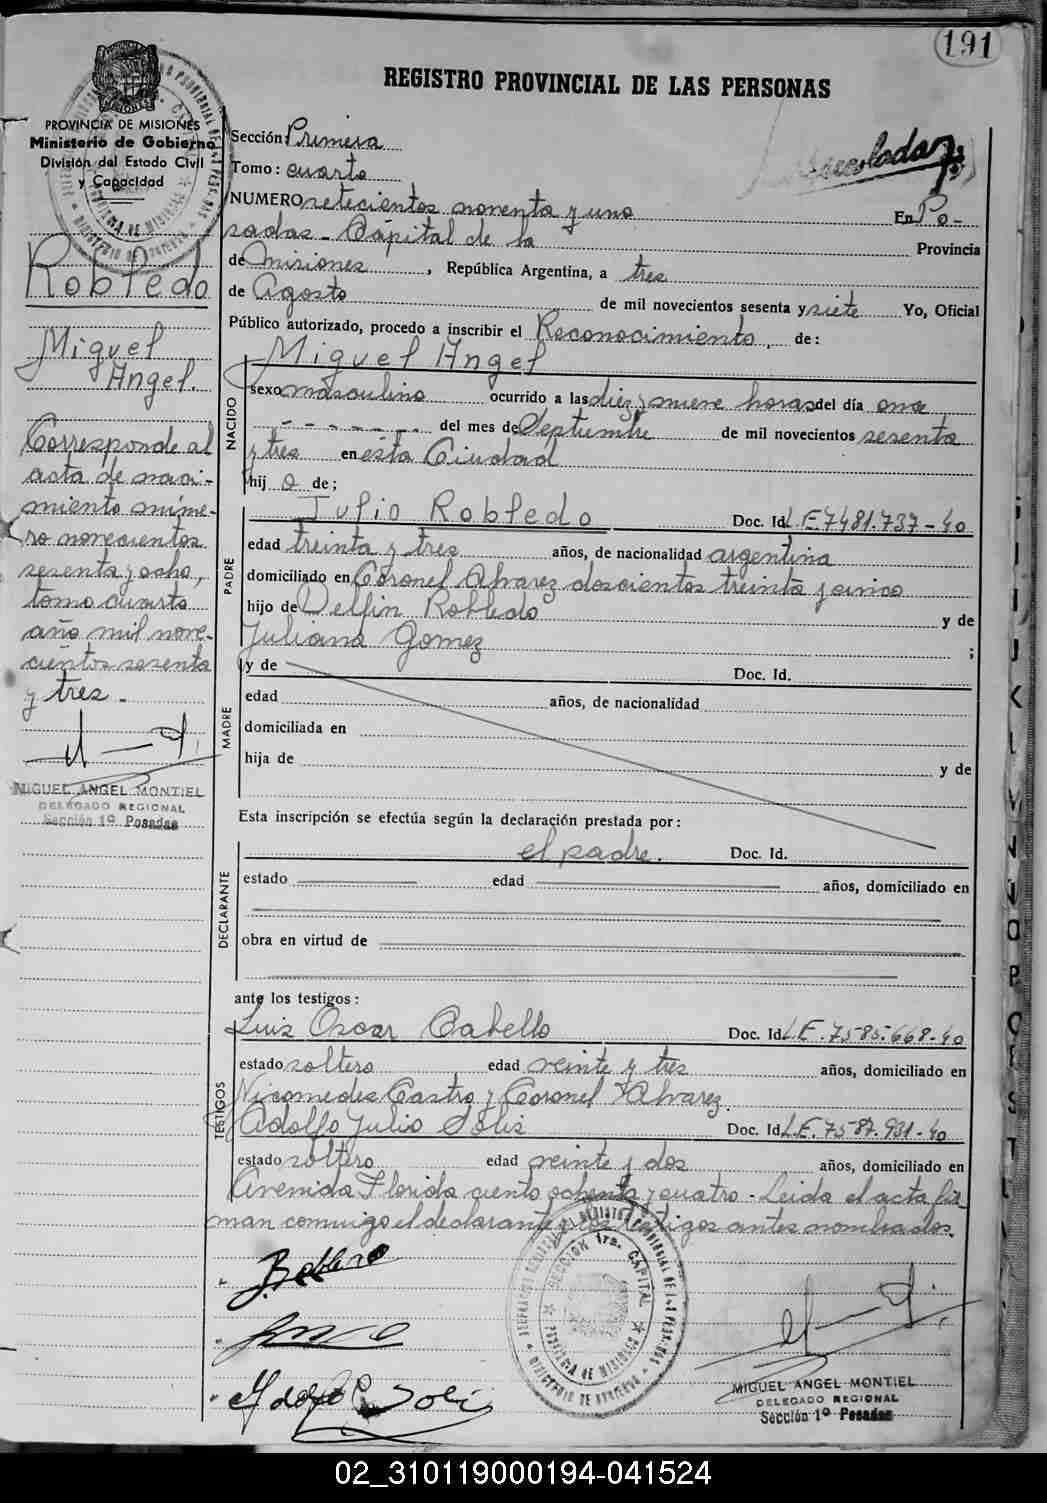 191
REGISTRO PROVINCIAL DE LAS PERSONAS
PROVINCIA DE MISIONES
Ministerio de Gobierno
División del Estado Civil
y Capacidad
Robledo
Miguel
Angel.
Corresponde al
acta de naci-
miento núme-
ro novecientos
sesenta y ocho,
tomo cuarto
año mil nove-
cientos sesenta
y tres.-
MIGUEL ANGEL MONTIEL
DELEGADO REGIONAL
Sección 1º Posadas
Sección: Primera
Tomo: cuarto
NUMERO setecientos noventa y uno En Po-
sadas - Capital de la Provincia
de Misiones, República Argentina, a tres
de Agosto de mil novecientos sesenta y siete Yo, Oficial
Público autorizado, procedo a inscribir el Reconocimiento. de:
NACIDO
Miguel Angel
sexo masculino ocurrido a las diez y nueve horas del día once
------- del mes de Septiembre de mil novecientos sesenta
y tres en esta Ciudad
hij o de;
PADRE
Julio Robledo Doc. Id. L.E. 7481.737-40
edad treinta y tres años, de nacionalidad argentina
domiciliado en Coronel Alvarez doscientos treinta y cinco
hijo de Delfin Robledo y de
Juliana Gomez ;
MADRE
y de Doc. Id.
edad años, de nacionalidad
domiciliada en
hija de y de
Esta inscripción se efectúa según la declaración prestada por:
DECLARANTE
el padre. Doc. Id.
estado edad años, domiciliado en
obra en virtud de
ante los testigos:
TESTIGOS
Luis Oscar Cabello Doc. Id. L.E. 7585.668-40
estado soltero edad veinte y tres años, domiciliado en
Nicomedes Castro y Coronel Alvarez.
Adolfo Julio Solis Doc. Id. L.E. 7587.931-40
estado soltero edad veinte y dos años, domiciliado en
Avenida Florida ciento ochenta y cuatro - Leida el acta fir-
man conmigo el declarante y los testigos antes nombrados.
SECCION 1ra. CAPITAL
PROVINCIA DE MISIONES
MIGUEL ANGEL MONTIEL
DELEGADO REGIONAL
Sección 1º Posadas
02_310119000194-041524